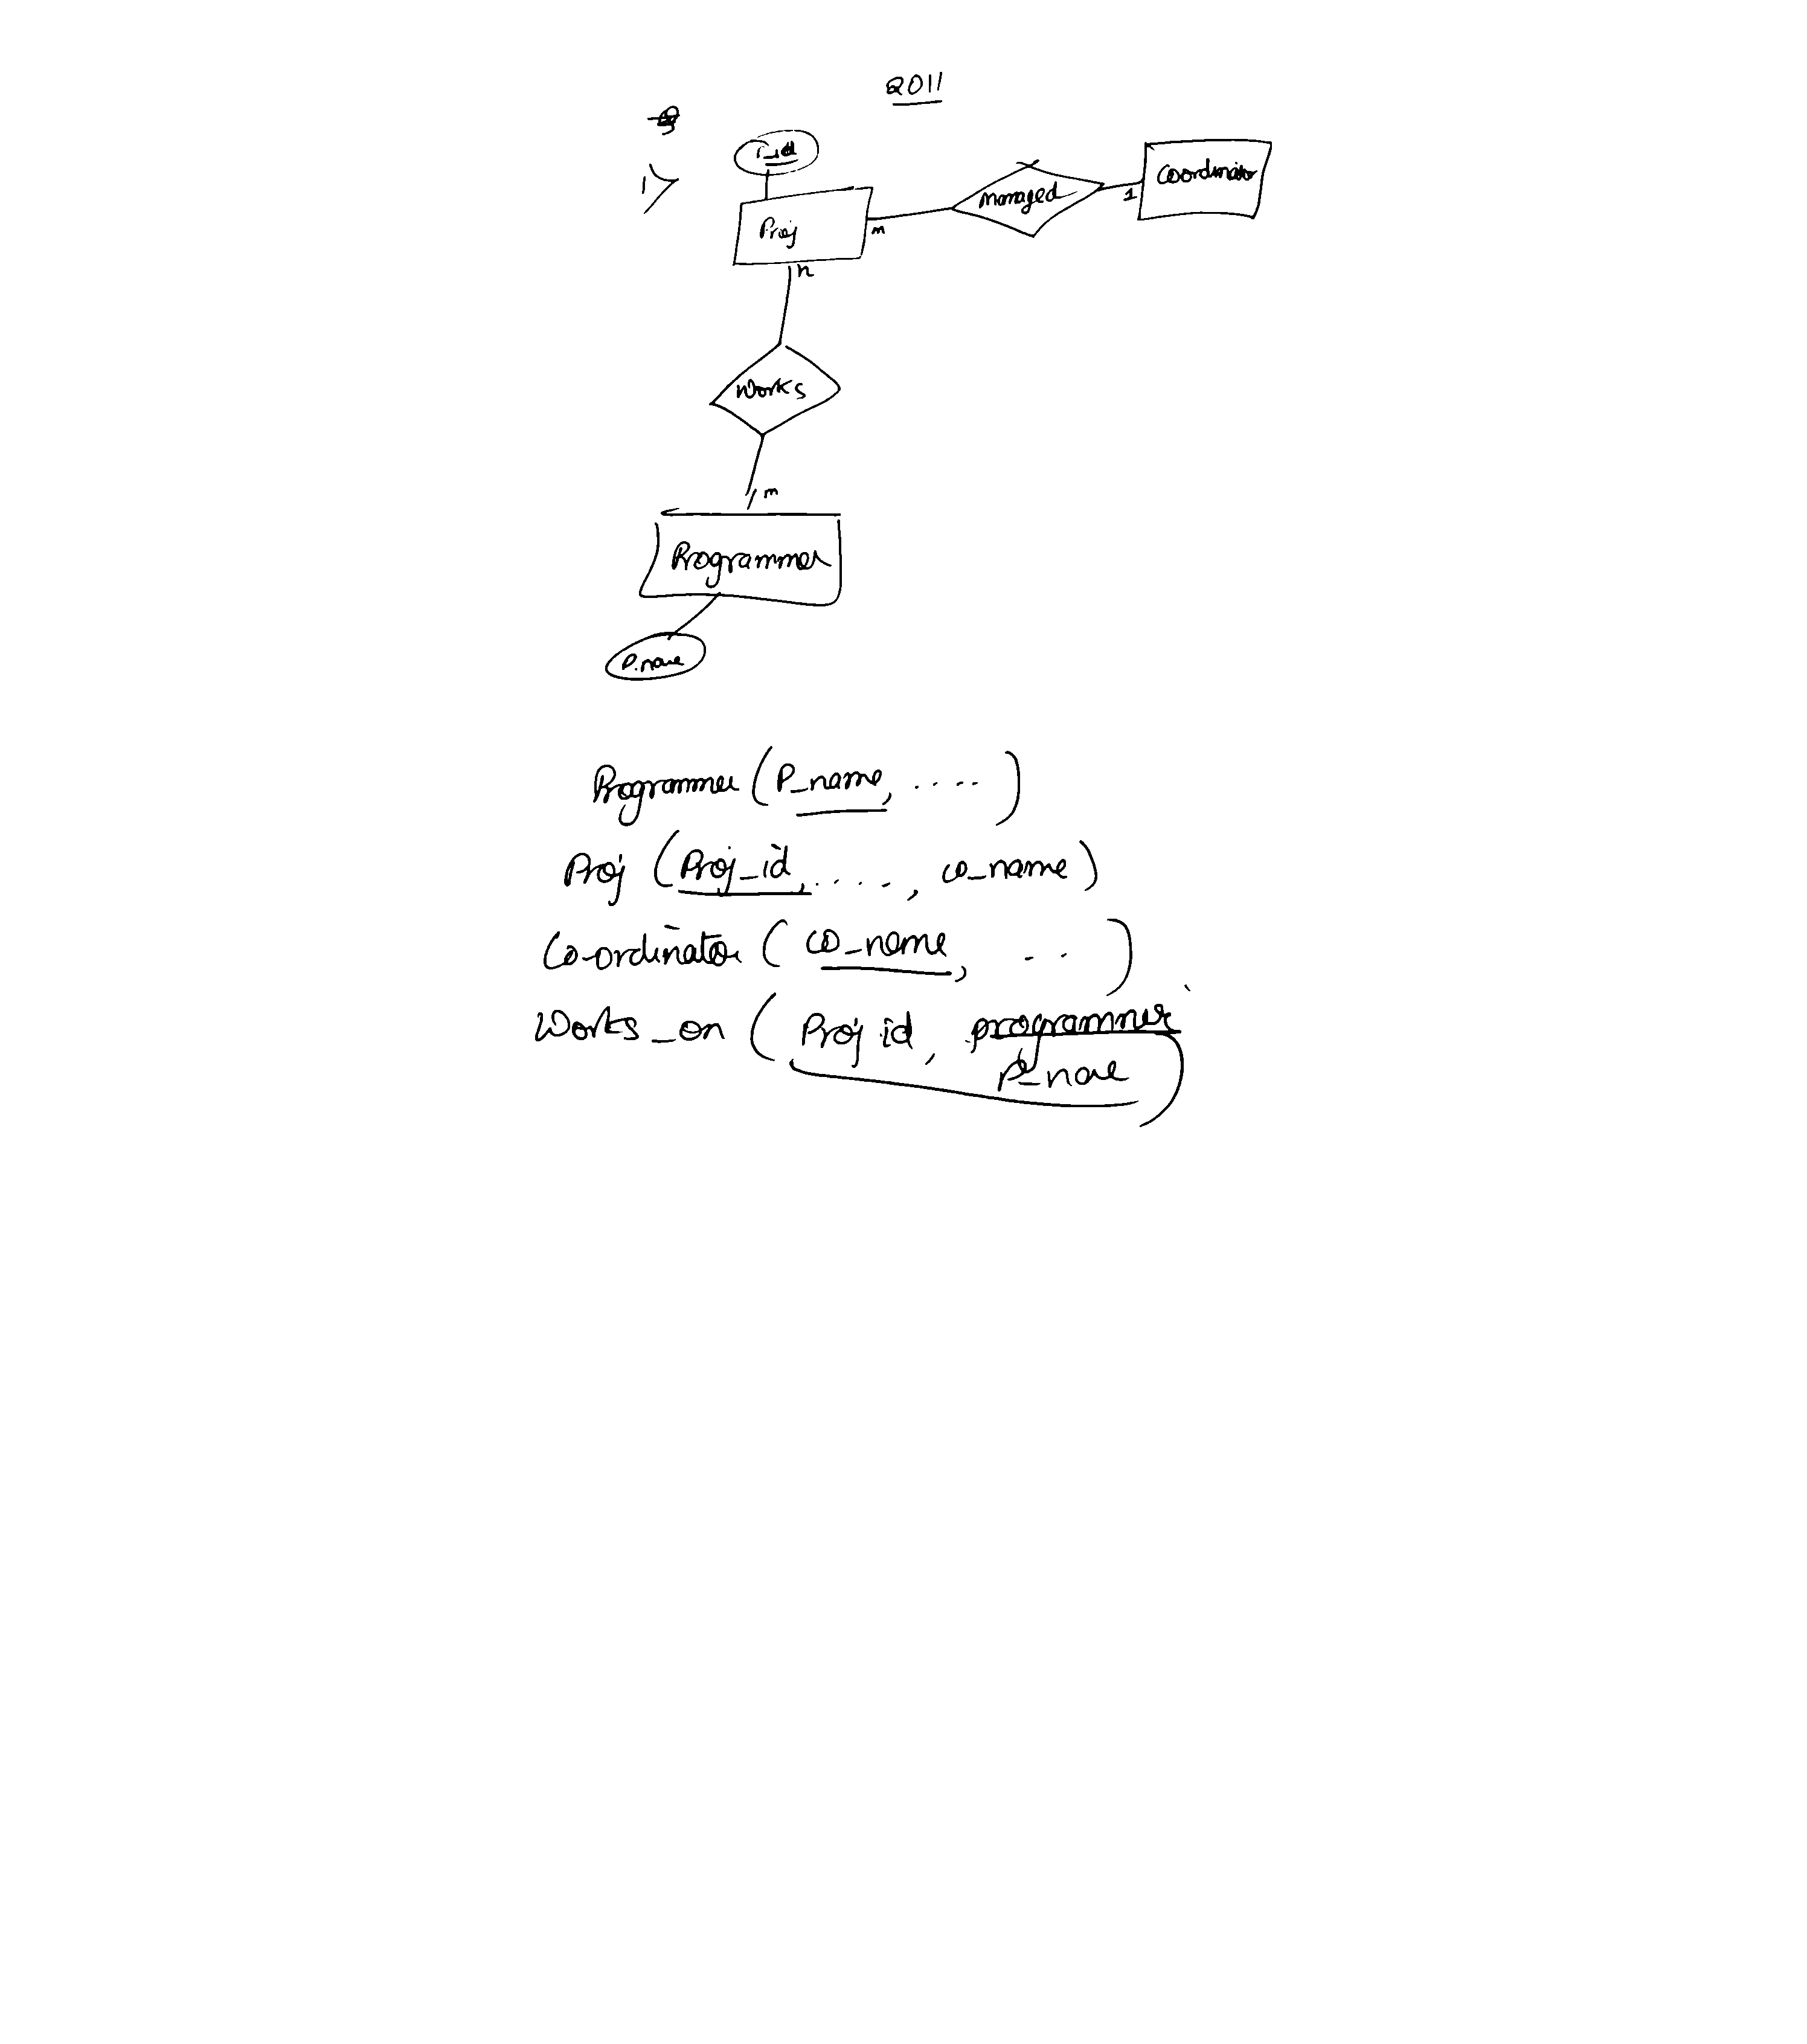 2011
1>
Proj
m
managed
1
Coordinator
n
Works
m
Programmer
P.name
Programmer (P_name, ....)
Proj (Proj_id, ...., co_name)
Co-ordinator (co_name, ..)
Works_on (Proj id, programmer
P_name)